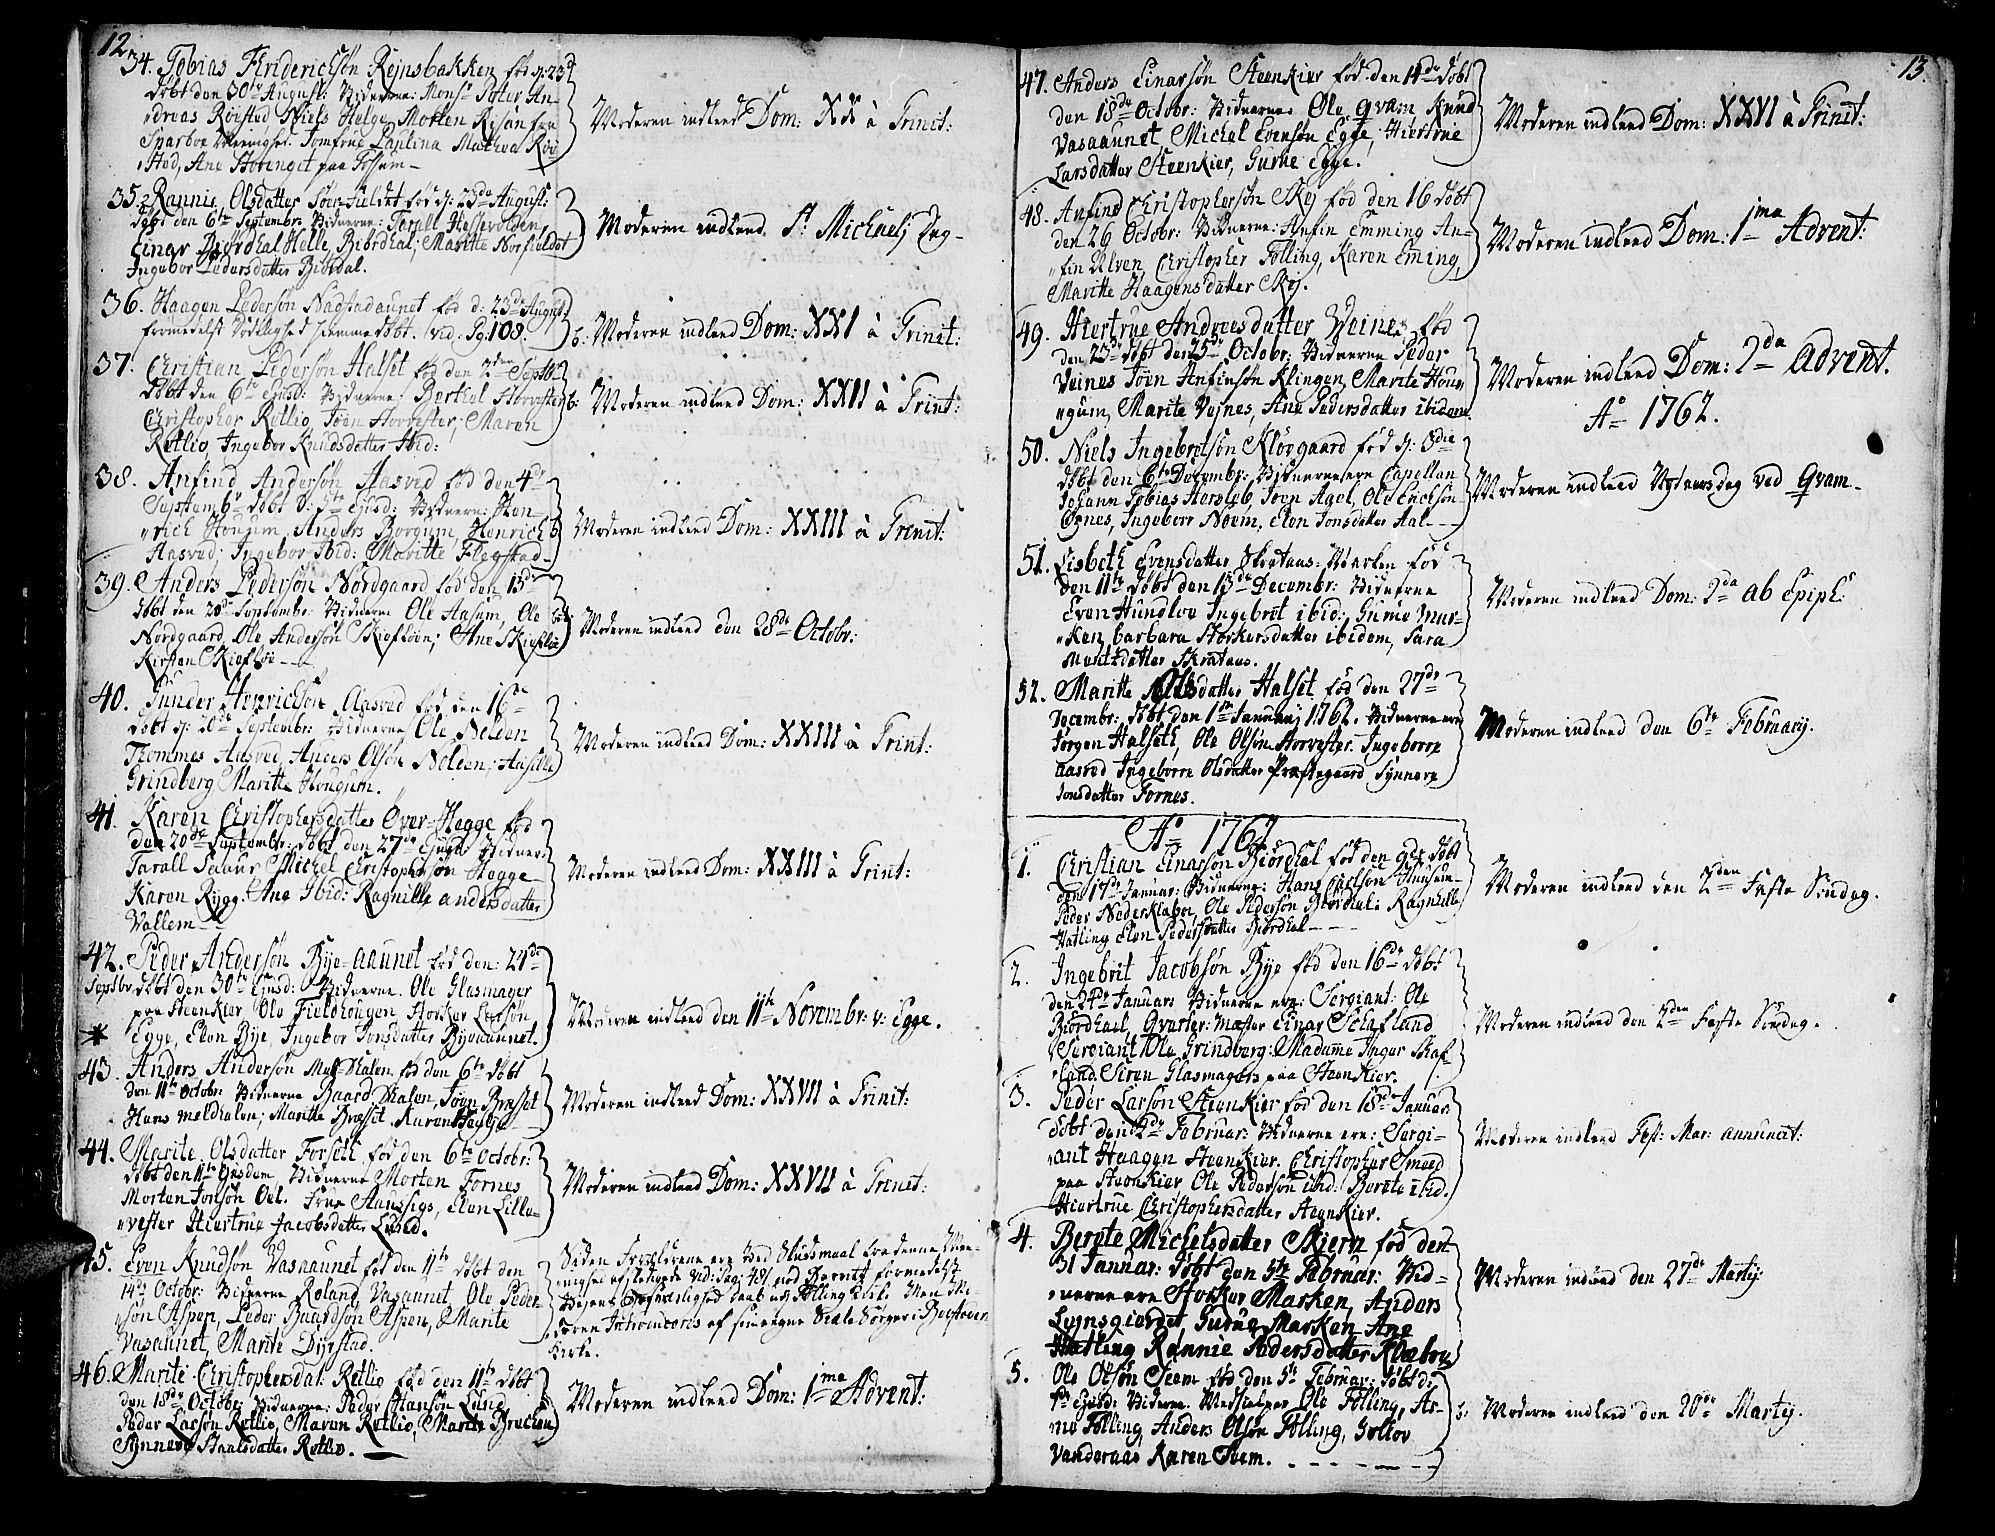 12
34. Tobias Friderichsön Rejnsbakken fød d: 23d
døbt den 30te August: Vidnerne: Mons Peter An-
dreas Röistad Niels Helge Morten Resan fra
Sparboe Jomfrue Paulina
Stod, Ane Storenget paa Fossum
Moderen indleed Dom: XX à Trinit:
35. Rannie Olsdatter fød d: 23de August:
døbt den 6te Septembr: Vidnerne: Tarall Hellevolden,
Einar Biördhal Helle, Biördhal; Maritte Norfieldet
Ingebor Pedersdatter Biördal.
Moderen indleed St Michaels Dag
36. Haagen Pedersön Nadstadaunet fød d: 23de August
formedelst Svaghed hjemmedøbt. vid. Pg. 108.
Moderen indleed Dom: XXI à Trinit:
37. Christian Pedersön Halset fød den 2den Septbr
døbt den 6te Ejusd: Vidnerne: Bertel Storvester
Christopher Retlio, Joen Storvester, Maren
Retlio, Ingebor Knudsdatter Ibid:
Moderen indleed Dom: XXII à Trinit:
38. Anfind Andersön Aasved fød den 4de
Septembr døbt d: 5te Ejusd: Vidnerne: Hen-
rich Hougum Anders Borgum, Henrich
Aasved; Ingebor Ibid: Maritte Flegstad
Moderen indleed Dom: XXIII à Trinit:
39. Anders Pedersön Nordgaard fød den 15de
døbt den 20de Septembr: Vidnerne Ole Aasum, Ole
Nordgaard, Ole Andersön Skiefloen; Ane Skiefloe
Kirsten Skiefloe
Moderen indleed den 28de Octobr:
40. Gunder Henrichsön Aasved fød den 16de
døbt d: 20de Septembr: Vidnerne Ole Nelden
Thommes Aasved, Anders Olsön Nolden; Ansille
Grindberg Maritte Hougum.
Moderen indleed Dom: XXIII à Trinit:
41. Karen Christophersdatter Over-Hegge fød
den 20de Septembr: døbt den 27de Ejusd: Vidner:
Tarall Salaur Michel Christophersön Hegge
Karen Rygg. Ane Ibid: Ragnille andersdatter
Vallem
Moderen indleed Dom: XXIII à Trinit:
42. Peder Andersön Bye-aaunet fød den: 21de
Septbr døbt den 30te Ejusd: Vidnerne. Ole Glasmager
paa Steenkier, Ole Fieldhougen Storker Larsön
Egge, Elen Bye, Ingebor Jonsdatter Byeaaunet.
Moderen indleed den 11te Novembr: v: Egge.
43. Anders Andersön Mel-Halen fød den 6te døbt
den 11te Octobr: Vidnerne Baard Dhalen, Joen Bræset
Hans meldhalen; Maritte Bræset, Karen
Moderen indleed Dom: XXVII à Trinit:
44. Marite Olsdatter Forseth fød den 6te Octobr:
døbt den 11te Ejusdem Vidnerne Morten Fornes
Morten Jonsön Oel. Frue Haussigs, Elen Lille-
vester Hiertrue Jacobsdatter Lund.
Moderen indleed Dom: XXVII à Trinit:
45. Even Knudsön Vasaaunet fød den 11te døbt den
14de Octobr: Vidnerne Roland Vasaunet, Ole Peder-
sön Aspen, Peder Baardsön Aspen, Marite
Vasaunet, Marite Dyrstad.
Siden Forældrene ere ved Skudsmaal fra denne Me-
nighed afskeedigede Vid: Pag: 491 med Barnet formedelst
Vejens Besværlighed Daab udi Fölling Kirke Men Mo-
deren Introduceris af sin egne Siele Sörger i Beystader
Kirke.
46. Marite Christophersdat: Retlio fød den 11te døbt
den 18de Octobr: Vidnerne: Peder Hansön Lund
Peder Larsön Retlio, Maren Retlio, Marite Brucken
Synnove Staalsdatter Retlio.
Moderen indleed Dom: 1ma Advent:
13.
47. Anders Einarsön Steenkier fød den 14de døbt
den 18de Octobr: Vidnerne Ole qvam Knud
Vasaaunet, Michel Evensön Egge, Hiertrue
Larsdatter Steenkier, Gurue Egge.
Moderen indleed Dom: XXVI à Trinit:
48. Anfind Christophersön Skej fød den 16 døbt
den 26 Octobr: Vidnerne: Anfin Emming An-
fin Ulven, Christopher Fölling, Karen Eming,
Maritte Haagensdatter Skej.
Moderen indleed Dom: 1ma Advent:
49. Hiertrue Andreesdatter Veines fød
den 23de døbt den 25de Octobr: Vidnerne Peder
Veines Joen Anfinsön Klingen, Marite Hou-
gum, Marite Vejnes, Ane Pedersdatter ibidem.
Moderen indleed Dom: 2da Advent.
Ao 1762.
50. Niels Ingebretsön Klövgaard fød d: 3die
døbt den 6te Decembr: Vidnerne ere Capellan
Johann Tobias Hersleb, Joen Agel, Ole Erichsön
Fornes, Ingeborr Noem, Elen Jonsdatter Aal
Moderen indleed Nytaarsdag ved qvam
51. Lisbeth Evensdatter Skrataas-Marken fød
den 11te døbt den 13de Decembr: Vidnerne
Even Hundloe Ingebret ibid; Gurue Mar-
ken, barbara Storkersdatter ibidem, Sara
Muntsdatter Skrataas.
Moderen indleed Dom: 2da ab Epiph:
52. Maritte Olsdatter Halset fød den 27de
Decembr: døbt den 1ste Januarij 1762. Vidnerne ere
Jörgen Halseth, Ole Olsön Storvester. Ingeborre
aasved Ingeborre Olsdatter Præstegaard Synnere
Jonsdatter Fornes.
Moderen indleed den 6te Februarij.
Ao 1762
1. Christian Einarsön Biördhal fød den 9de døbt
den 17de Januar: Vidnerne: Hans Carlsön
Peder Nederklaboe, Ole Pedersön Biördhal: Ragnhille
Hatling Elen Pedersdatter Biördhal
Moderen indleed den 2den Faste Söndag.
2. Ingebrit Jacobsön Bye fød den 16de døbt
den 24de Januar: Vidnerne ere: Sergiant: Ole
Biördhal, Qvarter: mæster Einar Schafland
Sergiant Ole Grindberg: Madame Inger Skaf-
land, Siren Glasmagers paa Steenkier.
Moderen indleed den 2den Faste Söndag.
3. Peder Larsön Steenkier fød den 18de Januar:
døbt den 2de Februar: Vidnerne ere: Sergi-
ant Haagen Steenkier. Christopher Smeed
paa Steenkier Ole Pedersön ibid. Berete ibid.
Hiertrue Christophersdatter Steenkier.
Moderen indleed Fest: Mar: annunciat:
4. Berete Michelsdatter Skierv fød den
31 Januar: døbt den 5te Februar: Vid-
nerne ere Storker Marken, Anders
Lejnsgierdet Gurue Marken Ane
Hatling Rannie Pedersdatter Klæboe
Moderen indleed den 27de Martij
5. Ole Olsön Seem fød den 5te Februar: døbt d:
7de Ejusd: Vidnerne. Medhielper Ole Fölling, Ar-
ne Fölling, Anders Olsön Fölling, Goltov
Vanderaas Karen Seem.
Moderen indleed den 20de Martij.